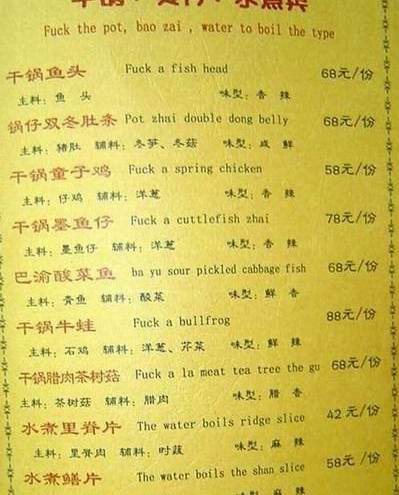 Fuck the pot, bao zai , water to boil the type
干锅鱼头 Fuck a fish head 68元/份
主料: 鱼 头 味型: 香 辣
锅仔双冬肚条 Pot zhai double dong belly 68元/份
主料: 猪肚 辅料: 冬笋、冬菇 味型: 咸 鲜
干锅童子鸡 Fuck a spring chicken 58元/份
主料: 仔鸡 辅料: 洋葱 味型: 香 辣
干锅墨鱼仔 Fuck a cuttlefish zhai 78元/份
主料: 墨鱼仔 辅料: 洋葱 味型: 香 辣
巴渝酸菜鱼 ba yu sour pickled cabbage fish 68元/份
主料: 青鱼 辅料: 酸菜 味型: 鲜 香
干锅牛蛙 Fuck a bullfrog 88元/份
主料: 石鸡 辅料: 洋葱、芹菜 味型: 鲜 辣
干锅腊肉茶树菇 Fuck a la meat tea tree the gu 68元/份
主料: 茶树菇 辅料: 腊肉 味型: 腊 香
水煮里脊片 The water boils ridge slice 42元/份
主料: 里脊肉 辅料: 时蔬 味型: 麻 辣
水煮鳝片 The water boils the shan slice 58元/份
味型: 麻 辣